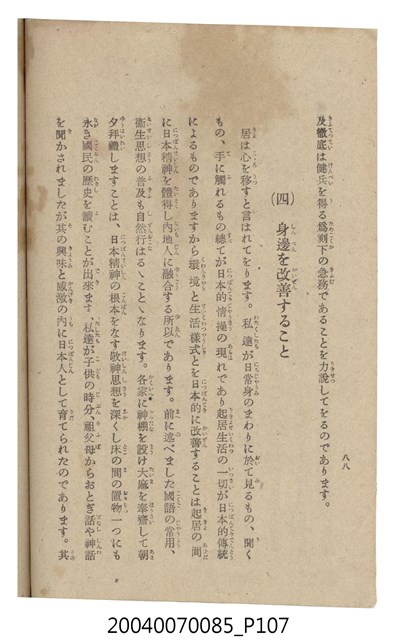 八八
及徹底は健兵を得る爲刻下の急務であることを力說してをるのであります。
(四) 身邊を改善すること
居は心を移すと言はれてをります。私達が日常身のまわりに於て見るもの、聞く
もの、手に觸れるもの總てが日本的情操の現れであり起居生活の一切が日本的傳統
によるものでありますから環境と生活樣式とを日本的に改善することは起居の間
に日本精神を體得し內地人に融合する所以であります。前に述べました國語の常用、
衞生思想の普及も自然行はるゝことゝなります。各家に神棚を設け大麻を奉齋して朝
夕拜禮しますことは、日本精神の根本をなす敬神思想を深くし床の間の置物一つにも
永き國民の歷史を讀むことが出來ます。私達が子供の時分、祖父母からおとぎ話や神話
を聞かされましたが其の興味と感激の內に日本人として育てられたのであります。其
20040070085_P107